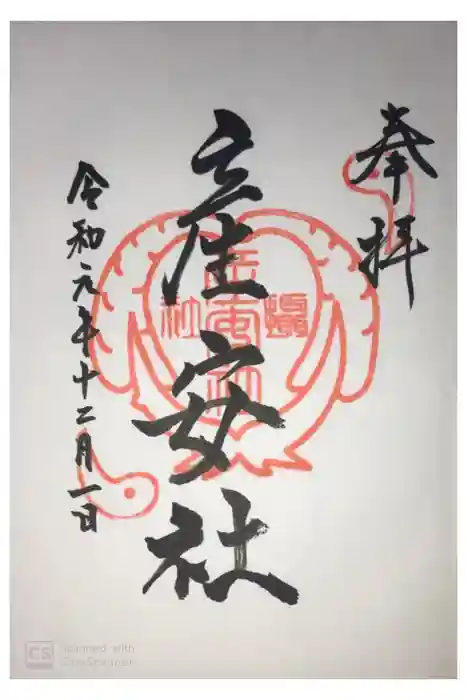 奉拝
産安社
令和元年十二月一日
CS Scanned with
CamScanner